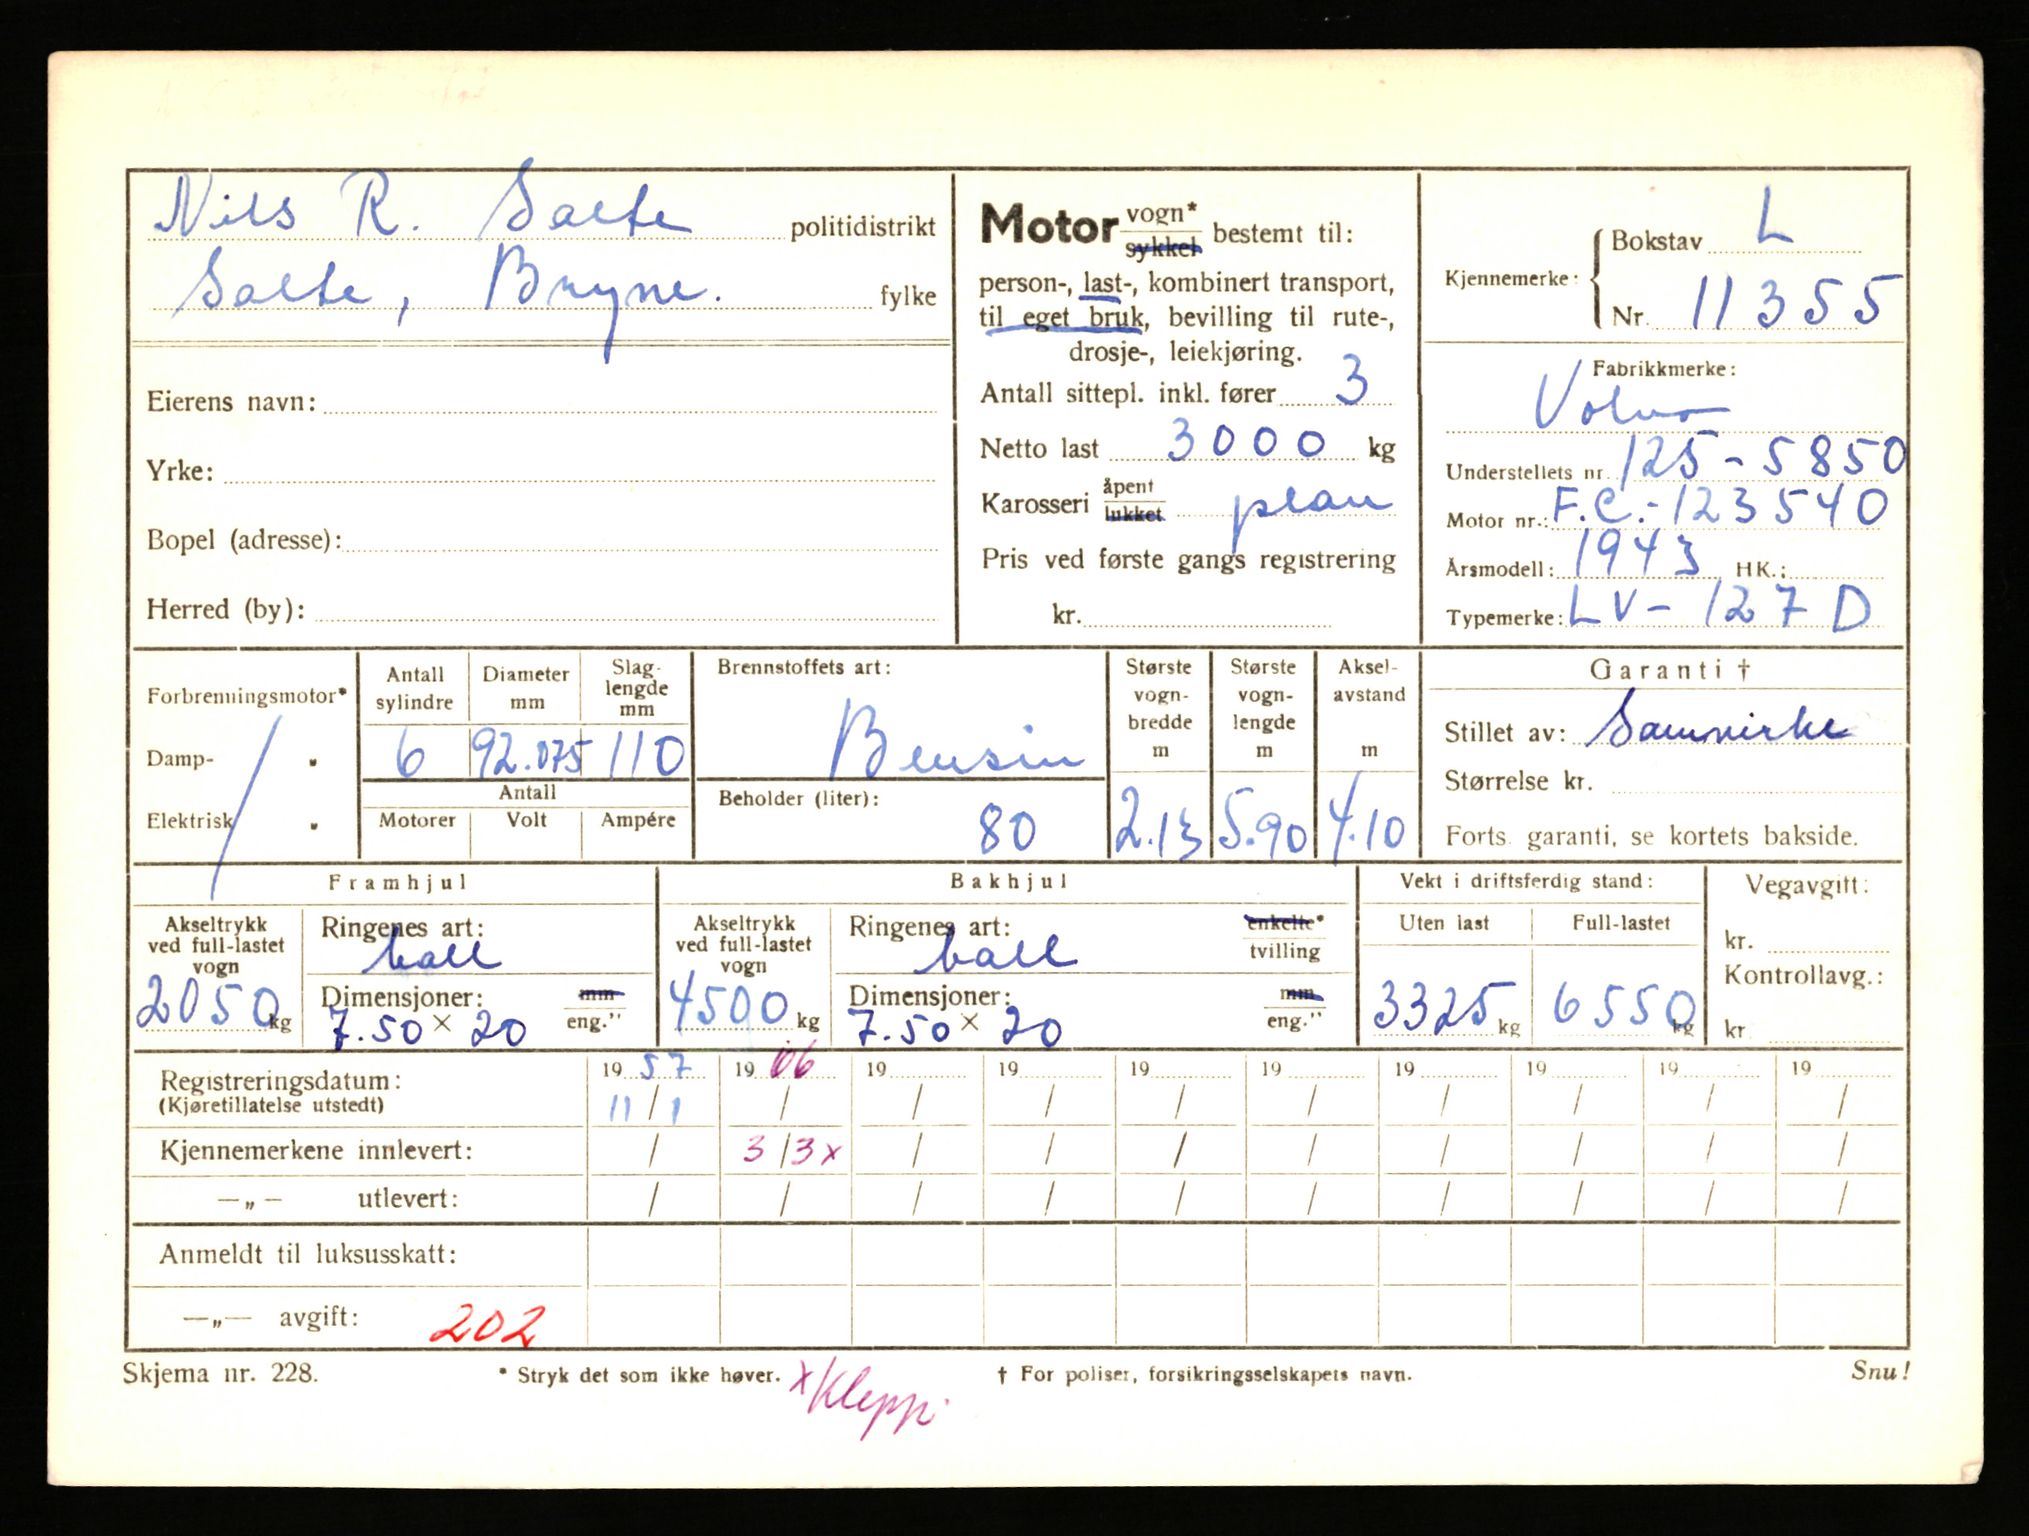 Nils R. Salte politidistrikt
Salte, Bryne. fylke
Eierens navn:
Yrke:
Bopel (adresse):
Herred (by):
Motor vogn* sykkel bestemt til:
person-, last-, kombinert transport,
til eget bruk, bevilling til rute-,
drosje-, leiekjøring.
Antall sittepl. inkl. fører 3
Netto last 3000 kg
Karosseri åpent lukket plan
Pris ved første gangs registrering
kr.
Kjennemerke: Bokstav L
Nr. 11355
Fabrikkmerke:
Volvo
Understellets nr. 125-5850
Motor nr.: F.C.-123540
Årsmodell: 1943 HK.:
Typemerke: LV-127 D
Forbrenningsmotor*
Damp- "
Elektrisk "
Antall sylindre Diameter mm Slag- lengde mm
6 92.075 110
Antall
Motorer Volt Ampére
Brennstoffets art:
Bensin
Beholder (liter):
80
Største vogn- bredde m
2.13
Største vogn- lengde m
5.90
Aksel- avstand m
4.10
Garanti †
Stillet av: Samvirke
Størrelse kr.
Forts. garanti, se kortets bakside.
Framhjul
Akseltrykk ved full-lastet vogn
2050 kg
Ringenes art:
ball
Dimensjoner: mm
7.50 × 20 eng."
Bakhjul
Akseltrykk ved full-lastet vogn
4500 kg
Ringenes art: enkelte*
ball tvilling
Dimensjoner: mm
7.50 × 20 eng."
Vekt i driftsferdig stand:
Uten last Full-lastet
3325 kg 6550 kg
Vegavgift:
kr.
Kontrollavg.:
kr.
Registreringsdatum: 19 57 19 66 19 19 19 19 19 19 19 19
(Kjøretillatelse utstedt) 11/1 / / / / / / / / /
Kjennemerkene innlevert: / 3/3x / / / / / / / /
—„— utlevert: / / / / / / / / / /
Anmeldt til luksusskatt:
—„— avgift: 202
Skjema nr. 228. * Stryk det som ikke høver. x/Klepp. † For poliser, forsikringsselskapets navn. Snu!